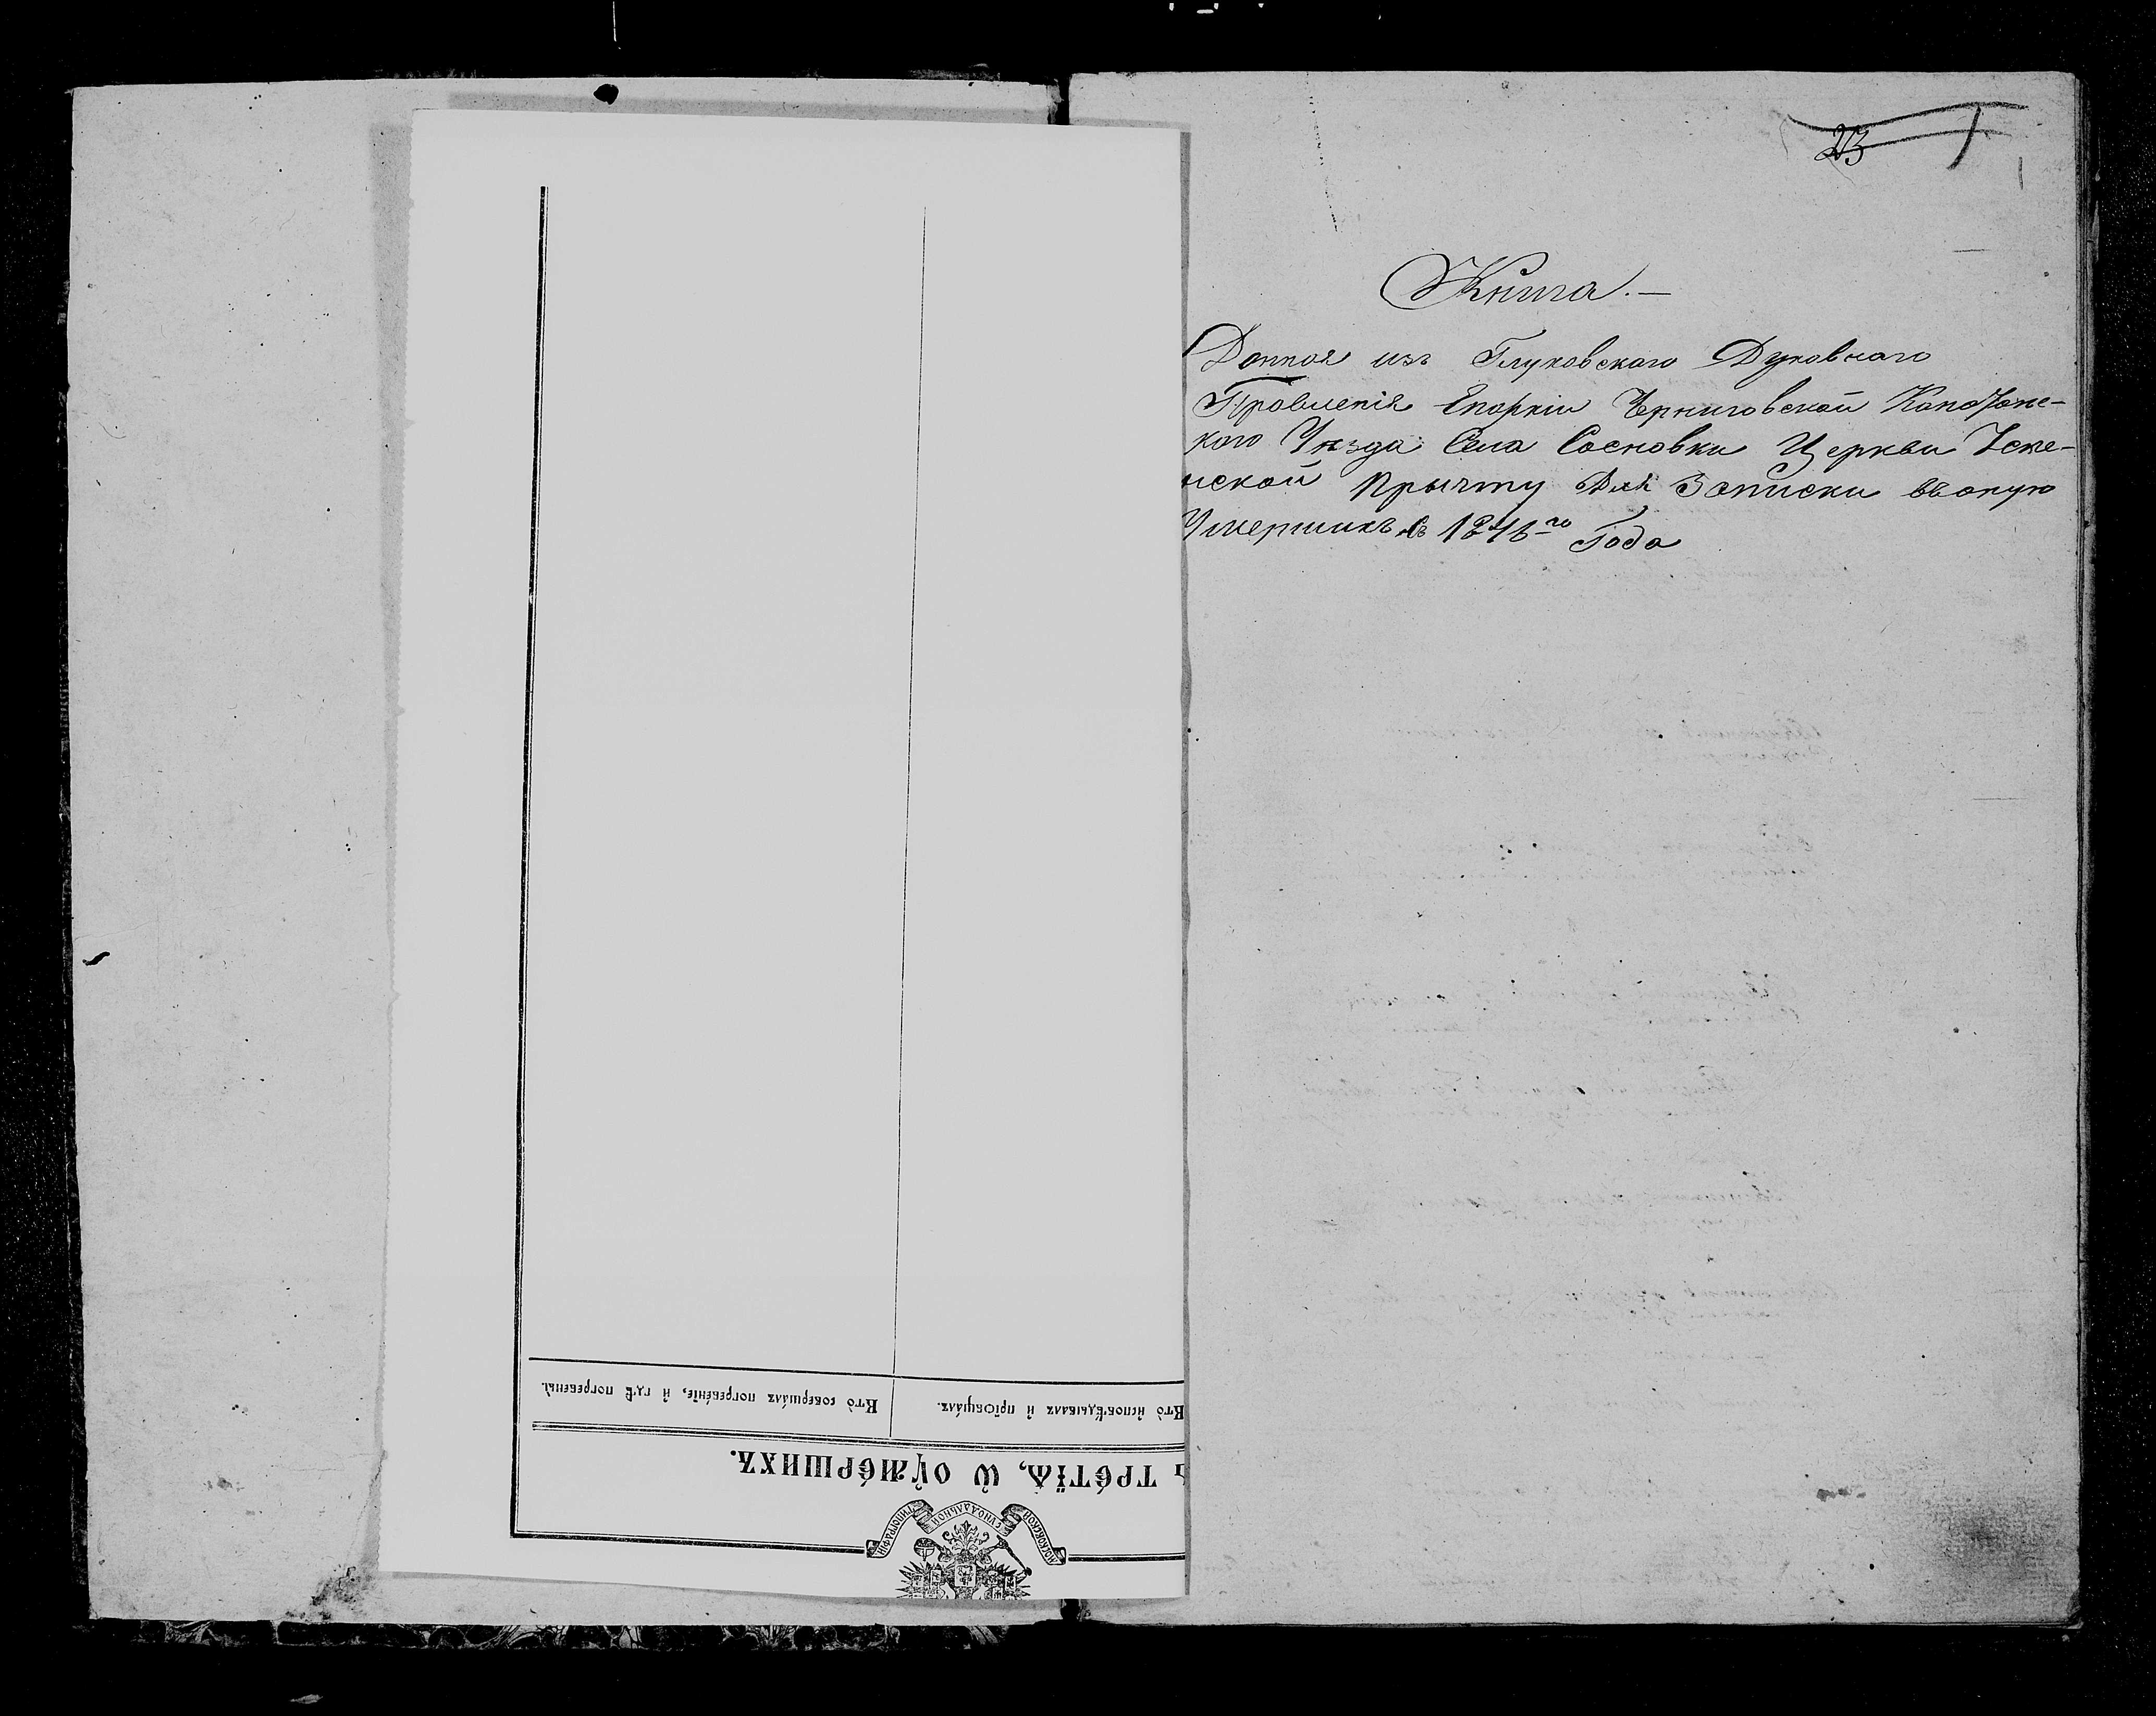 23 1
Книга.—
Данная изъ Глуховскаго Духовнаго
Правленія Епархіи Черниговской Конотопс-
кого Уѣзда Села Сосновки Церкви Успе-
нской Прычту Для Записки вьоную
Умершихъ съ 1846го Года
Кто̀ и҆сповѣ́дывалъ и҆ прїѡбща́лъ.
Кто̀ соверша́лъ погребе́нїе, и҆ гдѣ̀ погребены̀.
ТРЕ́ТЇѦ, Ѽ ОУ҆МЕ́РШИХЪ.
МОСКОВСКОЙ СѴНОДАЛЬНОЙ ТИПОГРАФІИ